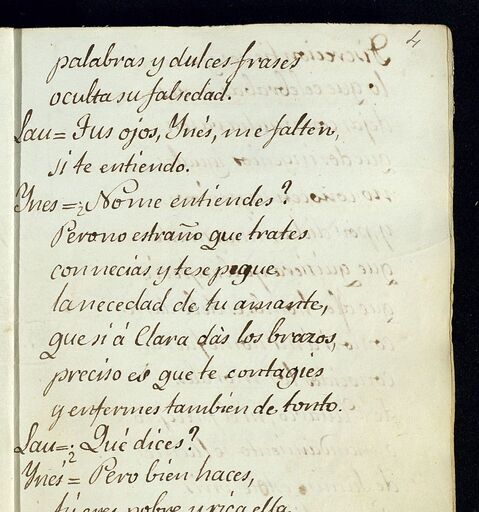 4
palabras y dulces frases
oculta su falsedad.
Lau= Tus ojos, Ynés, me falten,
si te entiendo.
Ynes=¿No me entiendes?
Pero no estraño que trates
con necias y te se pegue
la necedad de tu amante,
que si á Clara dàs los brazos,
preciso es que te contagies
y enfermes tambien de tonto.
Lau=¿Qué dices?
Ynés= Pero bien haces,
tú eres pobre y rica ella